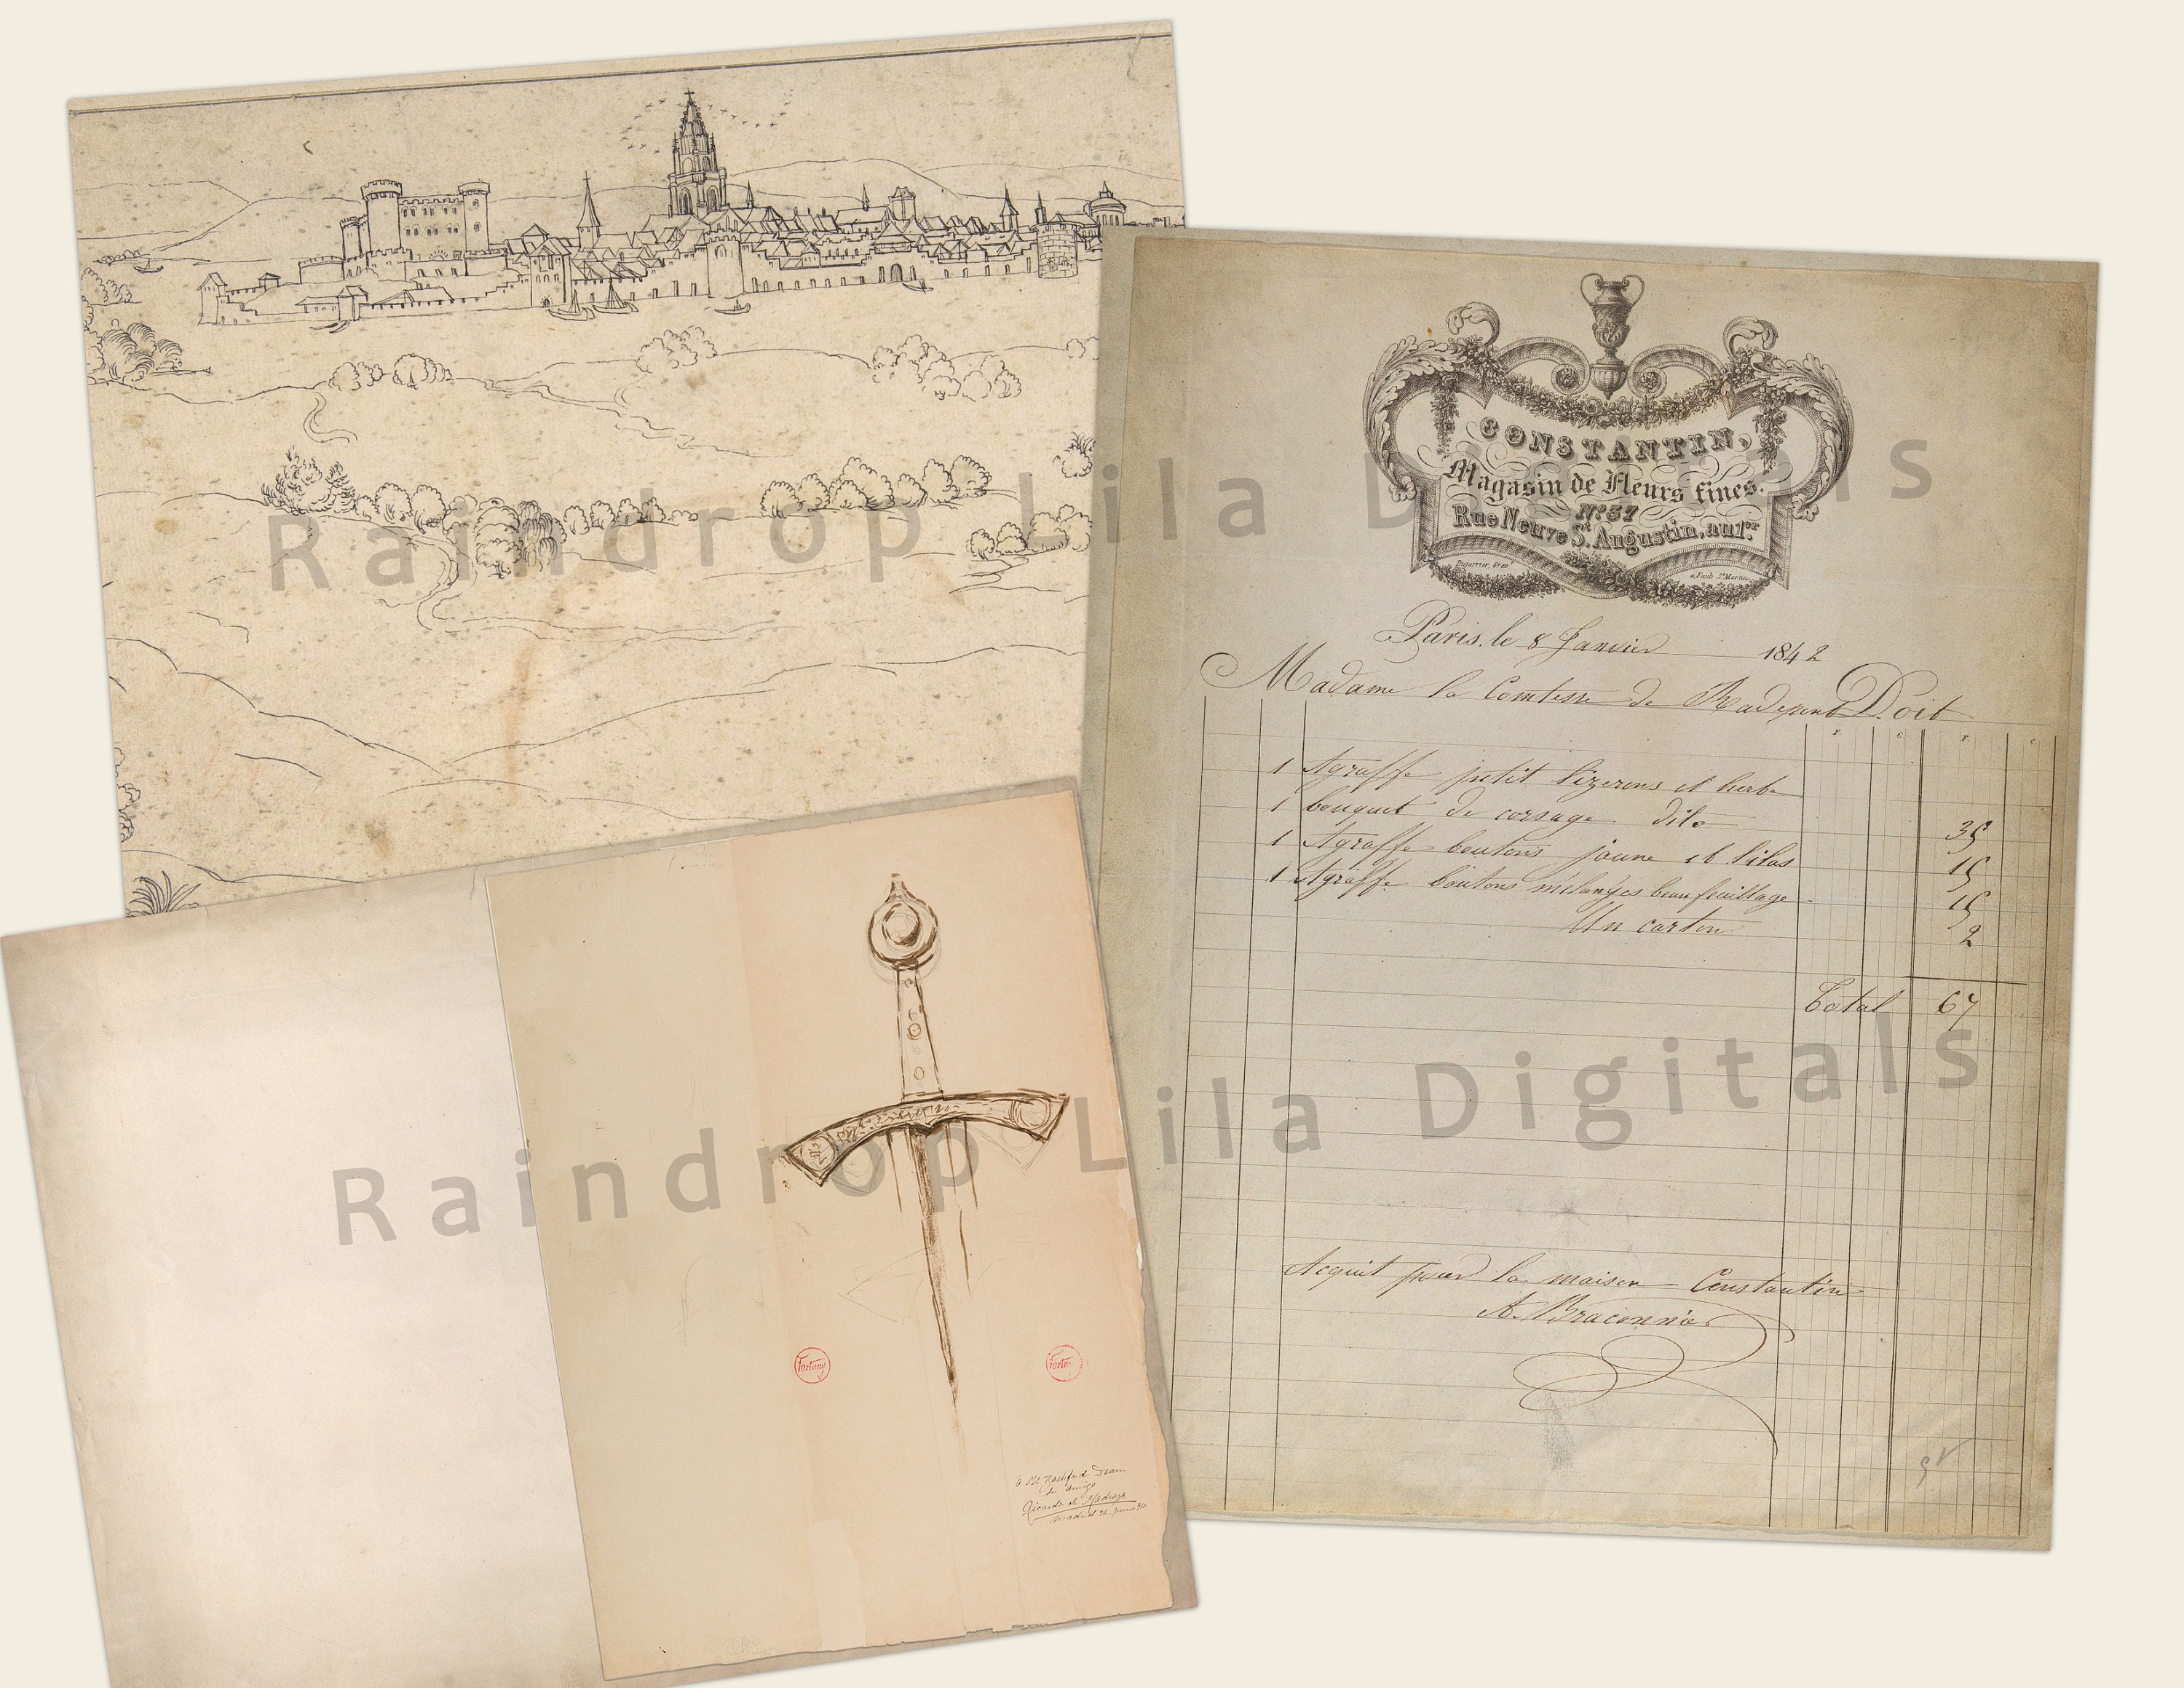 CONSTANTIN,
Magasin de Fleurs fines.
N.º 37
Rue Neuve S.t Augustin, au 1.er
a Faub. S.t Martin
Paris, le 8 Janvier 1842
Madame la Comtesse de Doit
F. C. F. C.
1 Agraffe petit lizerons et herbe
1 bouquet de corsage dito 35
1 Agraffe boutons jaune et lilas 15
1 Agraffe boutons mélangés beau feuillage 15
Un carton 2
Total 67
Acquit pour la maison Constantin
A. Braconnier
Fortuny
Fortuny
Su amigo
Ricardo de Madrazo
Madrid 26
Raindrop Lila Digitals
Raindrop Lila Digitals